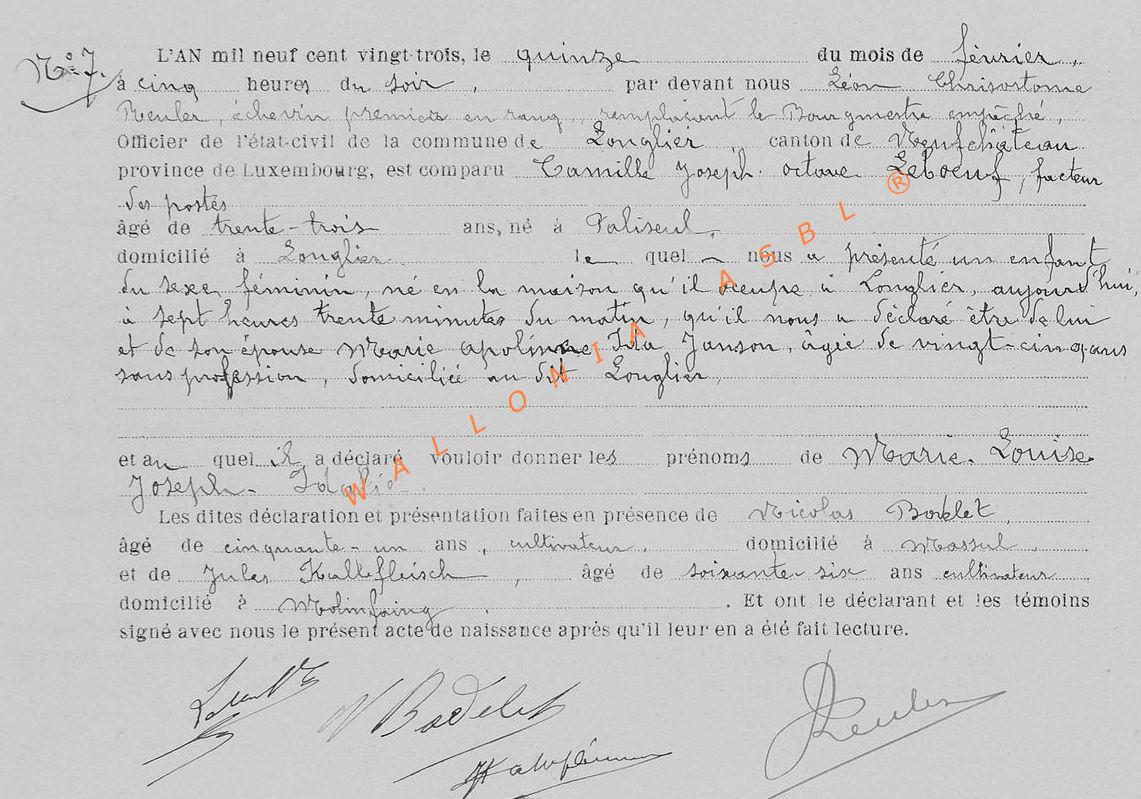 N° 7.
L'AN mil neuf cent vingt-trois, le quinze du mois de février,
à cinq heures du soir, par devant nous Léon Chrisostome
Reuler, échevin premier en rang, remplaçant le Bourgmestre empêché,
Officier de l'état-civil de la commune de Longlier, canton de Neufchâteau
province de Luxembourg, est comparu Camille Joseph Octave Leboeuf, facteur
des postes
âgé de trente-trois ans, né à Paliseul,
domicilié à Longlier le quel nous a présenté un enfant
du sexe féminin, né en la maison qu'il occupe à Longlier, aujourd'hui,
à sept heures trente minutes du matin, qu'il nous a déclaré être de lui
et de son épouse Marie Apolinaire Ida Janson, âgée de vingt-cinq ans
sans profession, domiciliée au dit Longlier,
et au quel il a déclaré vouloir donner les prénoms de Marie-Louise
Joseph-Idalie.
Les dites déclaration et présentation faites en présence de Nicolas Bodelet,
âgé de cinquante-un ans, cultivateur, domicilié à Massul
et de Jules Kalbfleisch, âgé de soixante six ans cultivateur
domicilié à Molinfaing. Et ont le déclarant et les témoins
signé avec nous le présent acte de naissance après qu'il leur en a été fait lecture.
N Bodelet
Reuler
WALLONIA ASBL ®